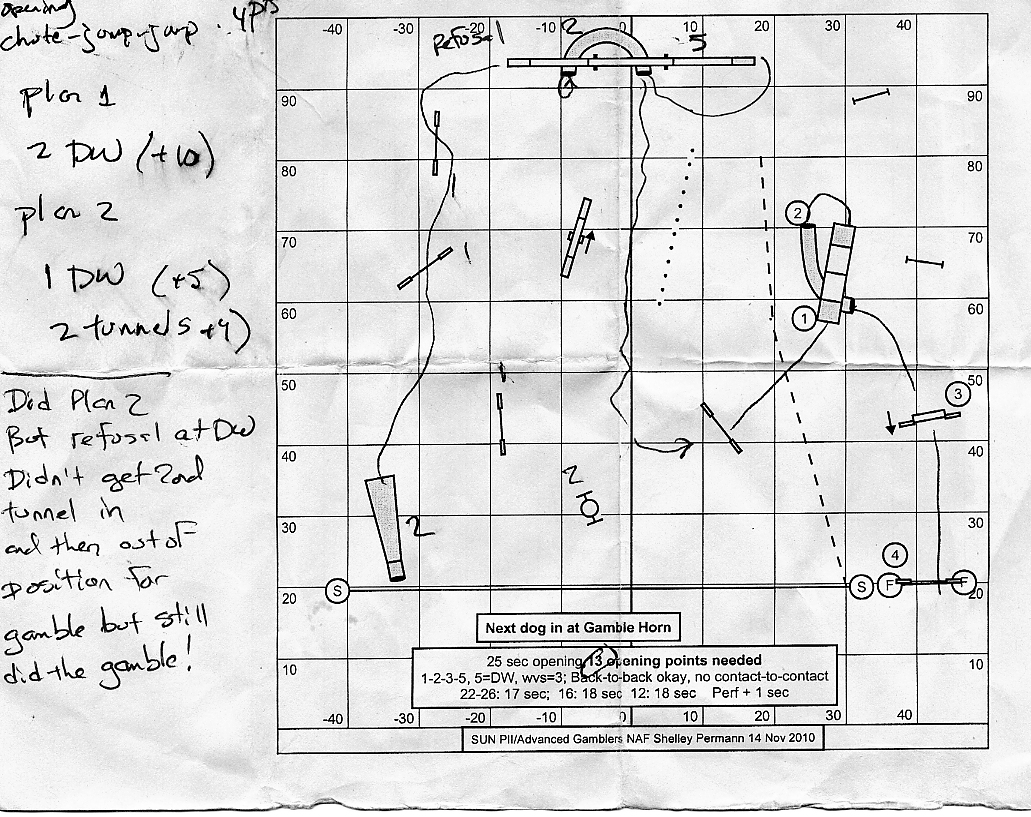 opening
chute-jump-jump . 4pts
plan 1
2 DW (+10)
plan 2
1 DW (+5)
2 tunnels +4)
Did Plan 2
But refusal at DW
Didn't get 2nd
tunnel in
and then out of
position for
gamble but still
did the gamble!
-40 -30 -20 -10 0 10 20 30 40
Refusal 2 5
90 90
80 80
1
2
70 70
1
60 60
1
50 50
1
3
40 40
2
30 30
2
4
S S F F
20 20
Next dog in at Gamble Horn
25 sec opening, 13 opening points needed
1-2-3-5, 5=DW, wvs=3; Back-to-back okay, no contact-to-contact
22-26: 17 sec; 16: 18 sec 12: 18 sec Perf + 1 sec
10 10
-40 -30 -20 -10 0 10 20 30 40
SUN PII/Advanced Gamblers NAF Shelley Permann 14 Nov 2010